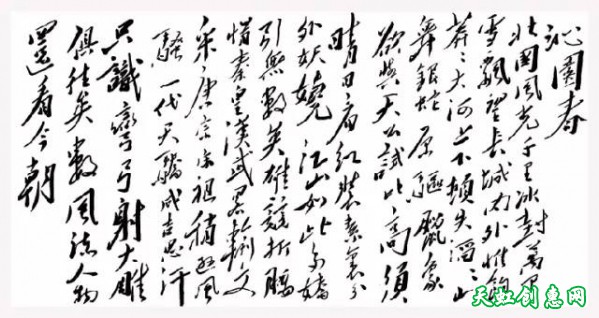 沁園春
北國風光千里冰封萬里
雪飄望長城內外惟餘
莽々大河上下頓失滔々山
舞銀蛇原驅臘象
欲與天公試比高須
晴日看紅裝素裹分
外妖嬈江山如此多嬌
引無數英雄競折腰
惜秦皇漢武略輸文
采唐宗宋祖稍遜風
騷一代天驕成吉思汗
只識彎弓射大雕
俱往矣數風流人物
還看今朝
天虹创意网